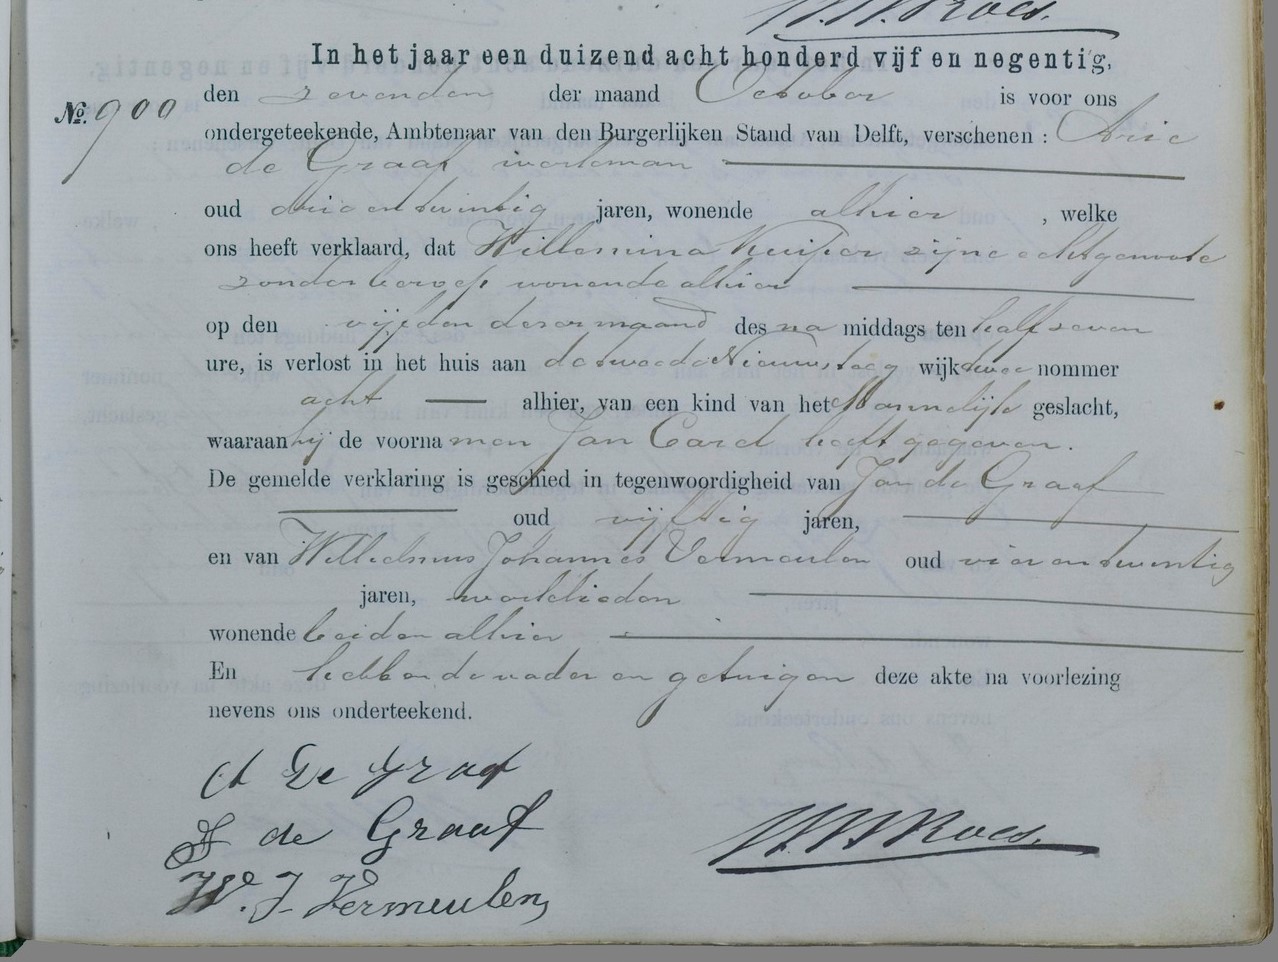 W.W. Roes.
In het jaar een duizend acht honderd vijf en negentig,
No. 900 den zevenden der maand October is voor ons
ondergeteekende, Ambtenaar van den Burgerlijken Stand van Delft, verschenen: Arie
de Graaf workman
oud drie en twintig jaren, wonende alhier, welke
ons heeft verklaard, dat Willemina Kuiper zijne echtgenoote
zonder beroep wonende alhier
op den vijfden dezer maand des na middags ten half zeven
ure, is verlost in het huis aan de tweede Nieuwsteeg wijk twee nommer
acht alhier, van een kind van het Mannelijk geslacht,
waaraan hij de voornamen Jan Carel heeft gegeven.
De gemelde verklaring is geschied in tegenwoordigheid van Jan de Graaf
oud vijftig jaren,
en van Willelmus Johannes Vermeulen oud vier en twintig
jaren, werklieden
wonende beiden alhier
En hebben de vader en getuigen deze akte na voorlezing
nevens ons onderteekend.
A de Graaf
J de Graaf
W. J. Vermeulen
W.W. Roes.